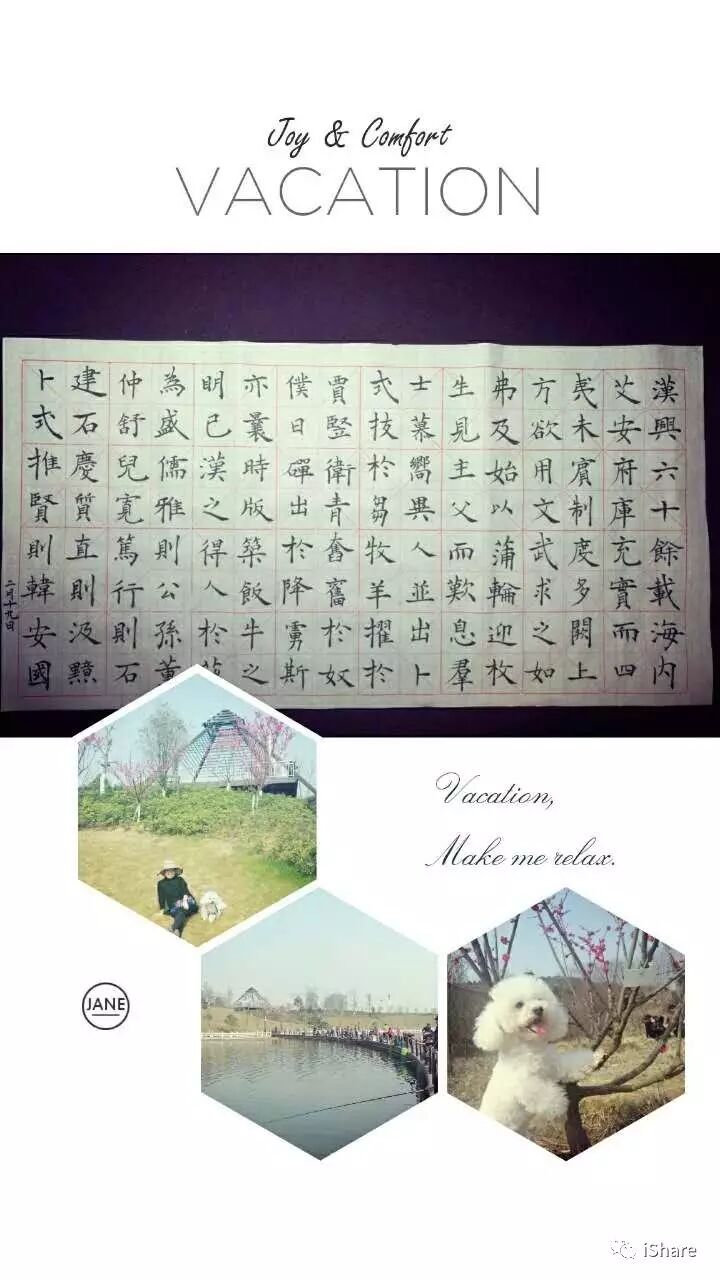 Joy & Comfort
VACATION
漢興六十餘載海内
艾安府庫充實而四
夷未賓制度多闕上
方欲用文武求之如
弗及始以蒲輪迎枚
生見主父而歎息羣
士慕嚮異人並出卜
式技於芻牧羊擢於
賈豎衛青奮舊於奴
僕日磾出於降虜斯
亦曩時版築飯牛之
明已漢之得人於
為盛儒雅則公孫董
仲舒兒寬篤行則石
建石慶質直則汲黯
卜式推賢則韓安國
二月十九日
Vacation,
Make me relax.
JANE
iShare